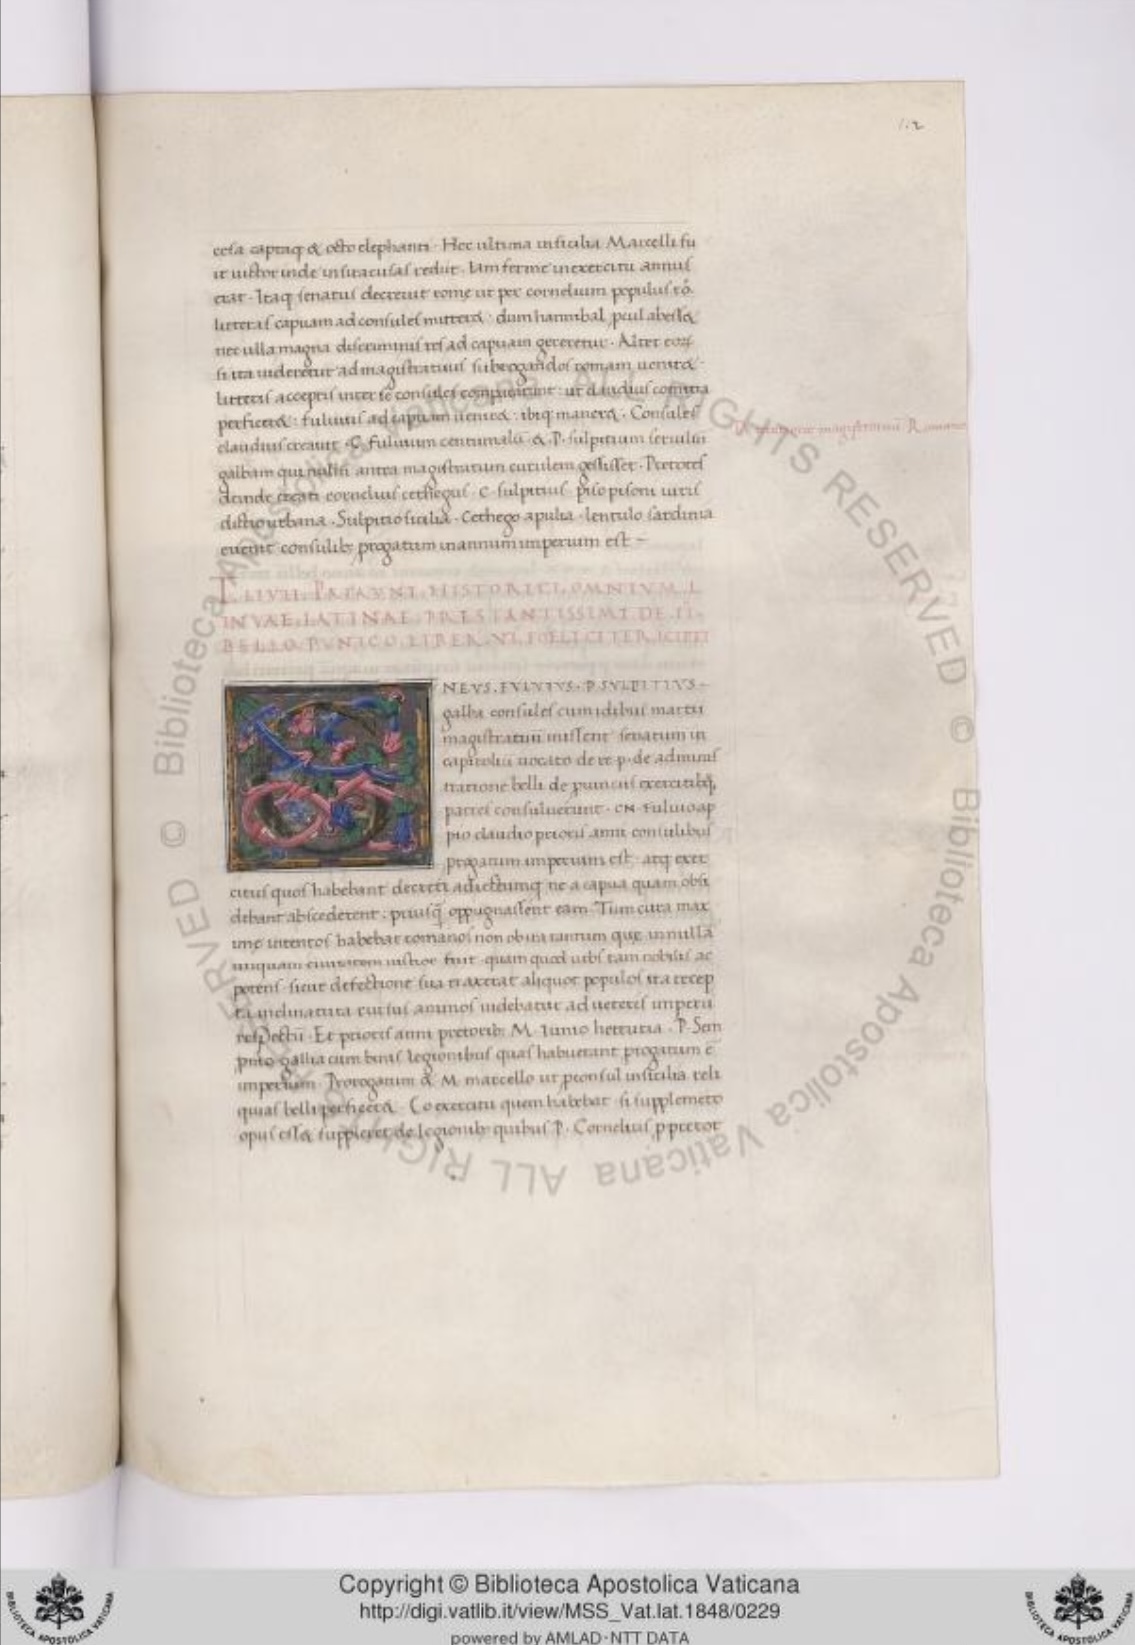 112
cesa captaq & octo elephanti · Hec ultima in sicilia Marcelli fu
it uictor inde in siracusas rediit · Iam ferme in exercitu annus
erat · Itaq senatus decreuit rome ut per cornelium populus ro.
litteras capuam ad consules mitter& : dum hannibal pcul abess&
nec ulla magna discriminis res ad capuam gereretur · Alter eoꝝ
si ita uideretur ad magistratuus subrogandos romam uenir& ·
litteris acceptis inter se consules compararunt : ut claudius comitia
perficer& : fuluius ad capuam uenir& : ibiq maner& · Consules
claudius creauit · C. fuluium centimalū & · P. sulpitium seruilii
galbam qui nullū antea magistratum curulem gessisset · Pretores
deinde creati cornelius cethegus · C · sulpitius · piso pisoni iuris
dictio urbana · Sulpitio sicilia · Cethego apulia · lentulo sardinia
euenit consulib; progatum in annum imperium est ~
magistratuum Romano
T. LIVII. PATAVNI. HISTORICI. OMNIVM. L
INVAE. LATINAE. PRESTANTISSIMI. DE. II.
BELLO. PVNICO. LIBER. VI. FOELICITER
NEVS. FVLVIVS. P. SVLPITIVS.
galba consules cum idibus martii
magistratuū inissent senatum in
capitoliū uocato de re · p · de adminis
tratione belli de puincus exercitibq,
patres consuluerunt · CN · Fuluio ap
pio claudio prioris anni consulibus
progatum imperium est : atq exer
citus quos habebant decreti adiectumq ne a capua quam obsi
debant abscederent : priusq̄ oppugnassent eam · Tum cura max
ime intentos habebat romanos non ob ira tantum que in nulla
unquam ciuitatem iustior fuit · quam quod urbs tam nobilis ac
potens · sicut defectione sua traxerat aliquot populos ita recep
ta inclinatura rursus animos uidebatur ad ueteris imperii
respectū · Et prioris anni pretorib; M. Iunio hetruria · P. Sem
pnio gallia cum binis legionibus quas habuerant progatum ē
imperium · Prorogatum & M. marcello ut pconsul in sicilia reli
quias belli perficer& · Co exercitu quem habebat · si supplemeto
opus ess& suppleret de legionib; quibus P. Cornelius p pretor
© Biblioteca Apostolica Vaticana ALL RIGHTS RESERVED © Biblioteca Apostolica Vaticana ALL RIGHTS RESERVED
Copyright © Biblioteca Apostolica Vaticana
http://digi.vatlib.it/view/MSS_Vat.lat.1848/0229
powered by AMLAD-NTT DATA
BIBLIOTECA APOSTOLICA VATICANA
BIBLIOTECA APOSTOLICA VATICANA